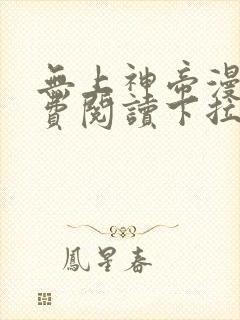 無上神帝漫
費閱讀下拉
鳳星春